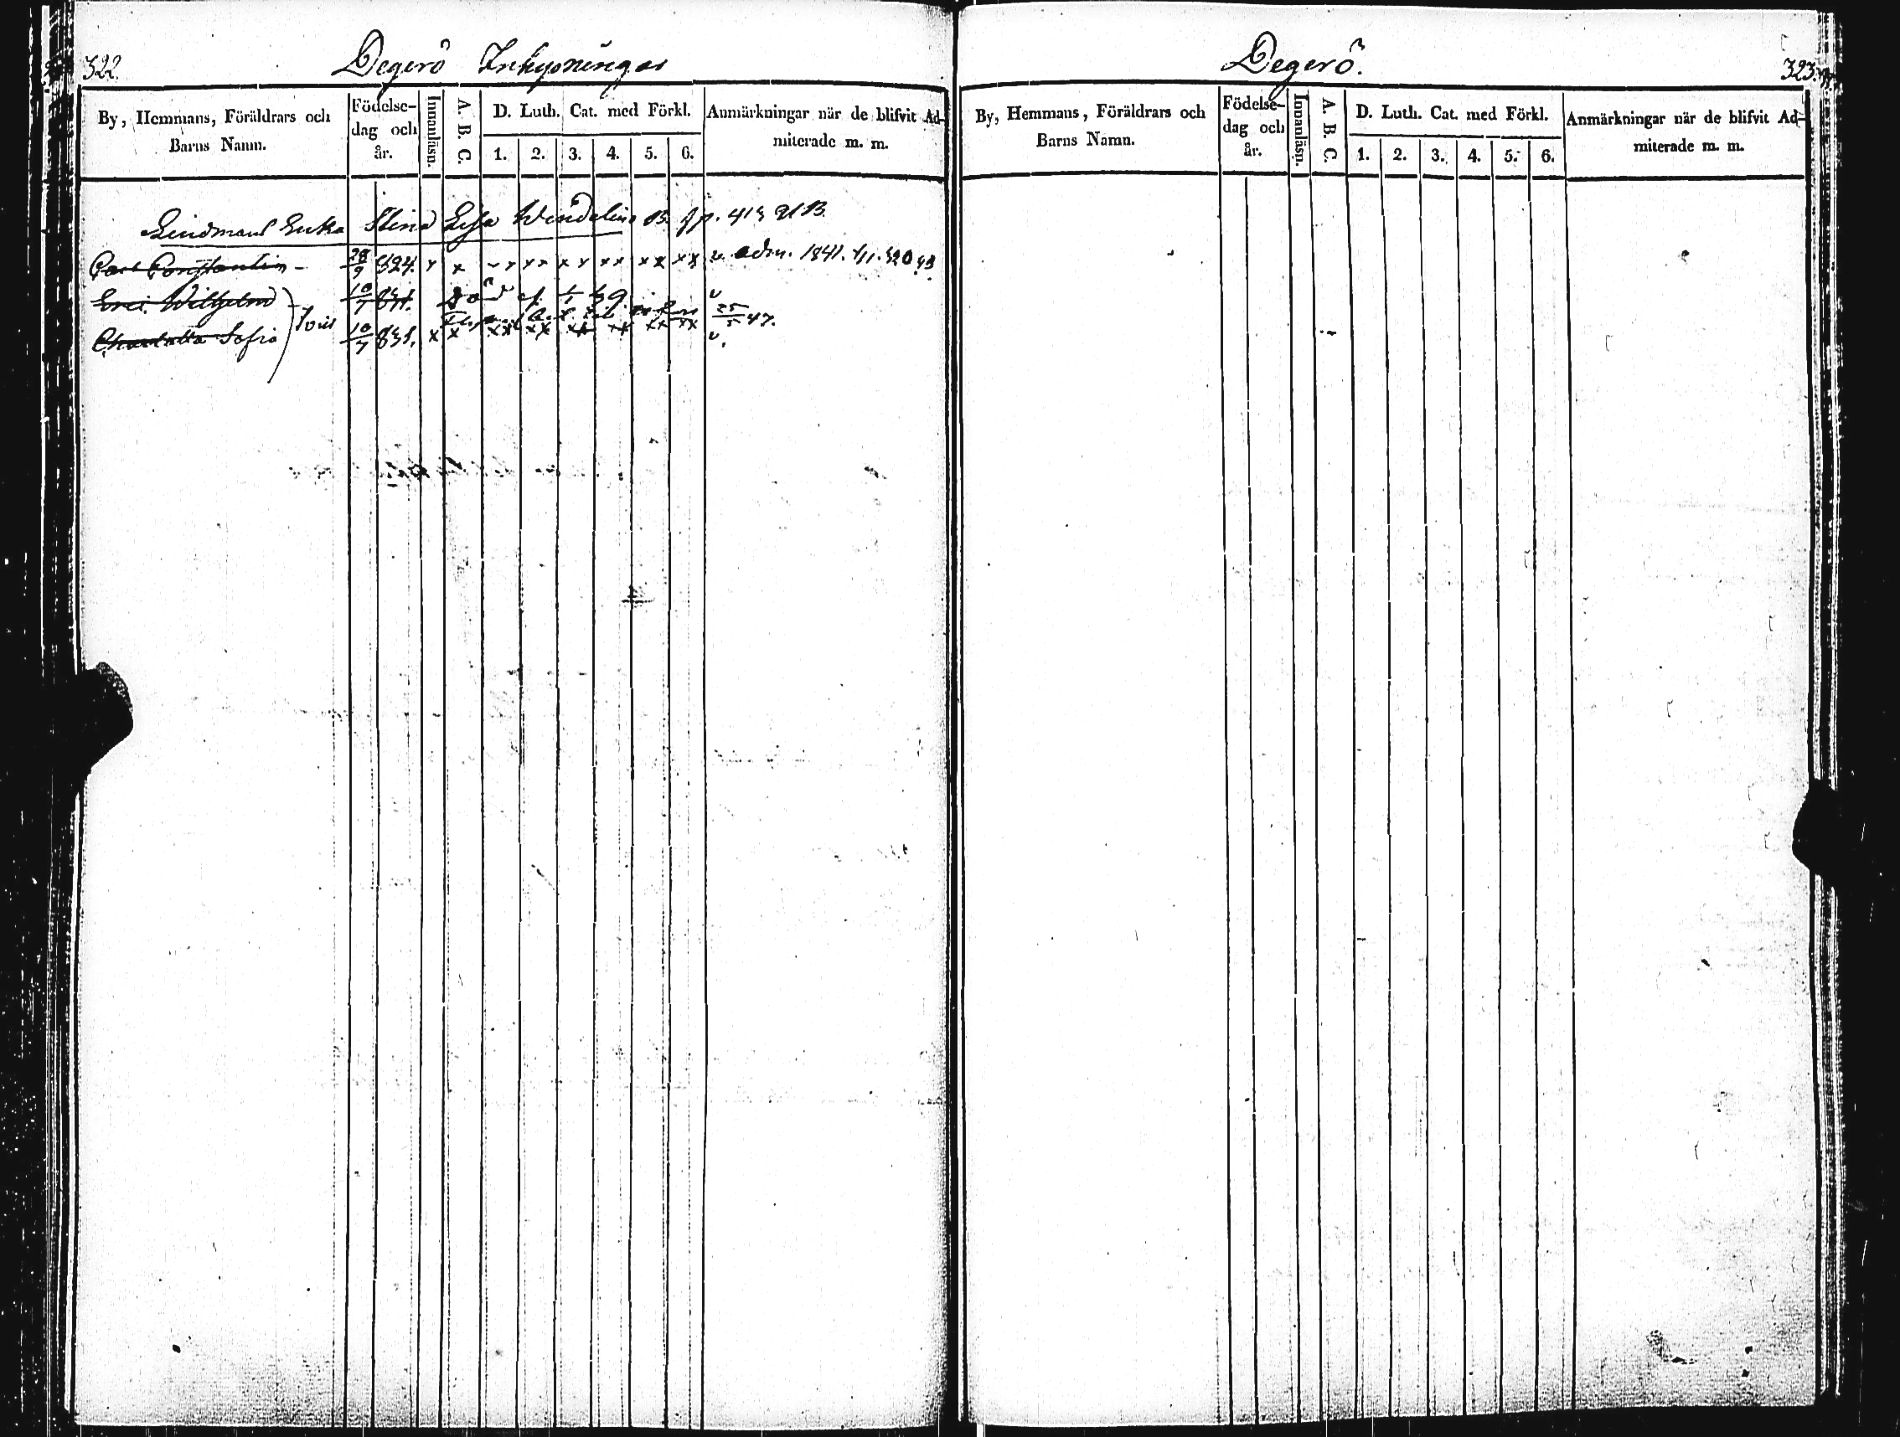 322. Degerö Inhysningar
By, Hemmans, Föräldrars och Barns Namn.
Födelse-dag och år.
Innanläsn.
A. B. C.
D. Luth. Cat. med Förkl.
1. 2. 3. 4. 5. 6.
Anmärkningar när de blifvit Ad-miterade m. m.
Lindmans Enka Stina Lisa Wendelins B. fp. 413 A B.
Carl Constantin - 28/9 824. x x adm. 1841.
Eric Wilhelm 10/7 831. Död
Charlotta Sofia 10/7 831. x x xx xx xx xx xx xx 25/5 47.
Degerö. 323
By, Hemmans, Föräldrars och Barns Namn.
Födelse-dag och år.
Innanläsn.
A. B. C.
D. Luth. Cat. med Förkl.
1. 2. 3. 4. 5. 6.
Anmärkningar när de blifvit Ad-miterade m. m.